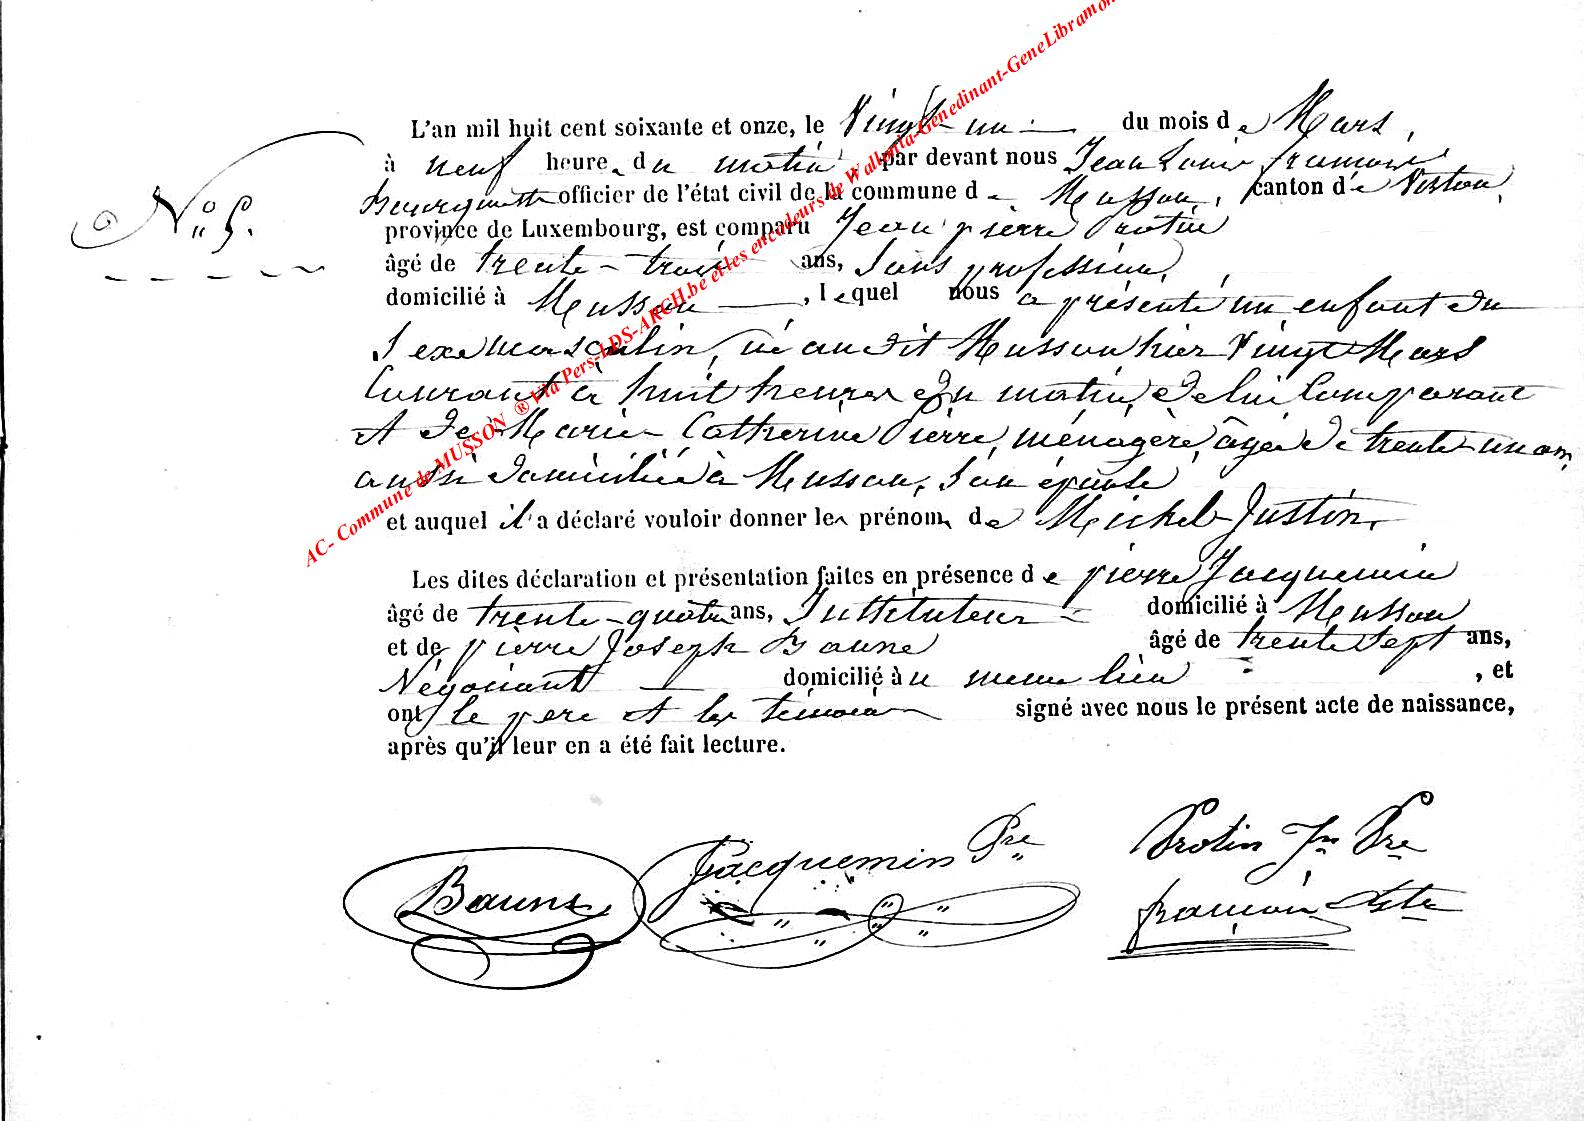 AC- Commune de MUSSON ® Via Pers-LDS-ARCH.be et les encodeurs de Wallonia-Genedinant-GeneLibramon
L'an mil huit cent soixante et onze, le Vingt un du mois de Mars,
à neuf heures du matin par devant nous Jean Louis
officier de l'état civil de la commune de Musson, canton de Virton,
N° 5.
province de Luxembourg, est comparu Jean pierre Protin
âgé de trente-trois ans, sans profession,
domicilié à Musson, lequel nous a présenté un enfant du
sexe masculin, né audit Musson hier Vingt Mars
Courant à huit heures du matin, de lui Comparant
et de Marie Catherine Pierre, ménagère, âgée de trente-un ans,
aussi domiciliée à Musson, son épouse
et auquel il a déclaré vouloir donner les prénoms de Michel-Justin.
Les dites déclaration et présentation faites en présence de pierre Jacquemin
âgé de trente-quatre ans, Instituteur domicilié à Musson
et de pierre Joseph Baune âgé de trente sept ans,
Négociant domicilié au meme lieu, et
ont le pere et les témoins signé avec nous le présent acte de naissance,
après qu'il leur en a été fait lecture.
Jacquemin Pre Protin Jn Pre
Baune